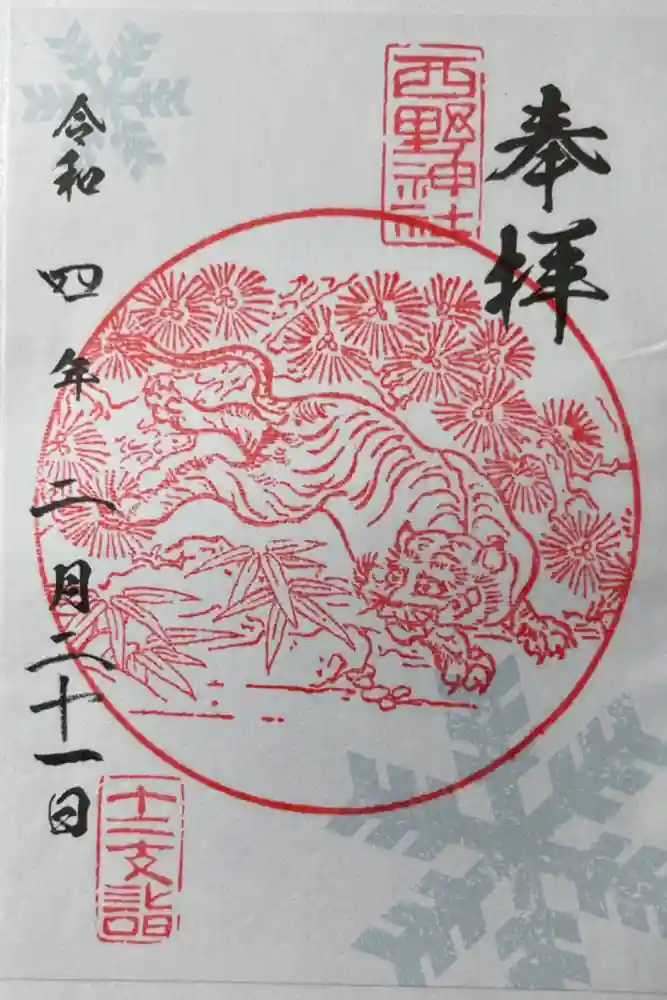 奉拝
西野神社
令和四年二月二十一日
十二支詣